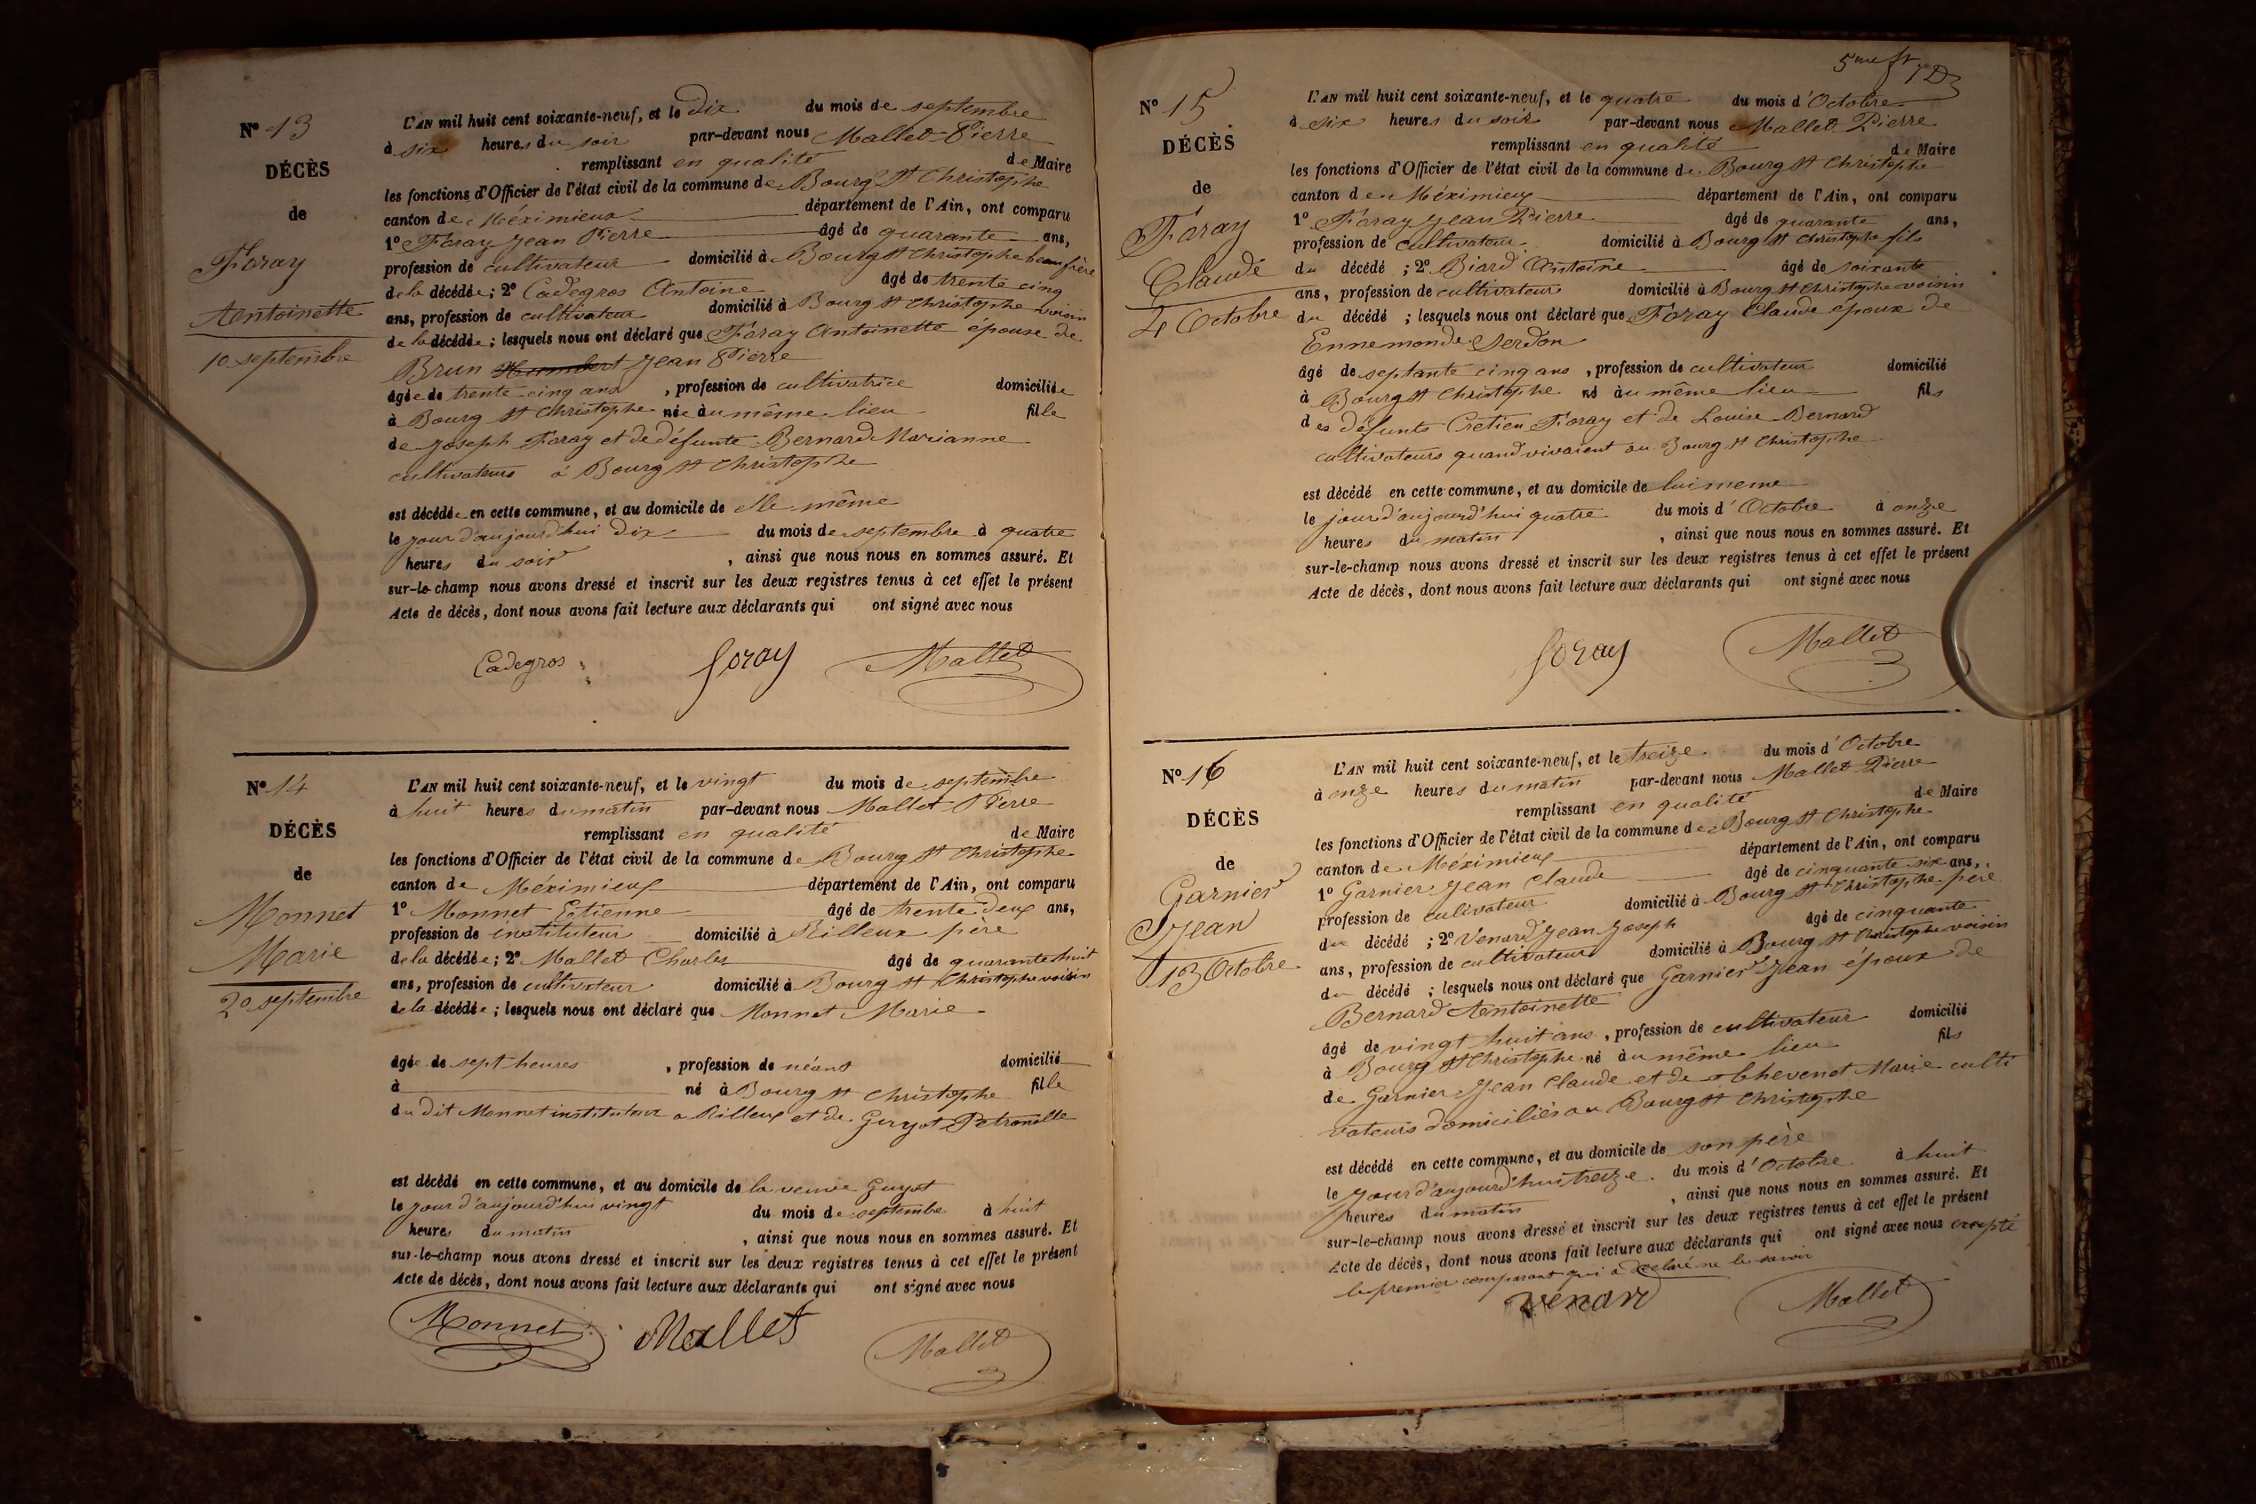 N° 13
DÉCÈS
de
Foray
Antoinette
10 septembre
L'AN mil huit cent soixante-neuf, et le dix du mois de septembre
à six heures du soir par-devant nous Mallet Pierre
remplissant en qualité de Maire
les fonctions d'Officier de l'état civil de la commune de Bourg St Christophe
canton de Méximieux département de l'Ain, ont comparu
1° Foray Jean Pierre âgé de quarante ans,
profession de cultivateur domicilié à Bourg St Christophe beau frère
de la décédée ; 2° Cadegros Antoine âgé de trente cinq
ans, profession de cultivateur domicilié à Bourg St Christophe voisin
de la décédée ; lesquels nous ont déclaré que Foray Antoinette épouse de
Brun Humbert Jean Pierre
âgée de trente cinq ans , profession de cultivatrice domiciliée
à Bourg St Christophe née au même lieu fille
de Joseph Foray et de défunte Bernard Marianne
cultivateurs à Bourg St Christophe
est décédée en cette commune, et au domicile de elle même
le jour d'aujourd'hui dix du mois de septembre à quatre
heures du soir , ainsi que nous nous en sommes assuré. Et
sur-le-champ nous avons dressé et inscrit sur les deux registres tenus à cet effet le présent
Acte de décès, dont nous avons fait lecture aux déclarants qui ont signé avec nous
Cadegros foray Mallet
N° 14
DÉCÈS
de
Monnet
Marie
20 septembre
L'AN mil huit cent soixante-neuf, et le vingt du mois de septembre
à huit heures du matin par-devant nous Mallet Pierre
remplissant en qualité de Maire
les fonctions d'Officier de l'état civil de la commune de Bourg St Christophe
canton de Méximieux département de l'Ain, ont comparu
1° Monnet Etienne âgé de trente deux ans,
profession de instituteur domicilié à Rilleux père
de la décédée ; 2° Mallet Charles âgé de quarante huit
ans, profession de cultivateur domicilié à Bourg St Christophe voisin
de la décédée ; lesquels nous ont déclaré que Monnet Marie
âgée de sept heures , profession de néant domicilié
à né à Bourg St Christophe fille
du dit Monnet instituteur a Rilleux et de Guyot Petronille
est décédé en cette commune, et au domicile de la veuve Guyot
le jour d'aujourd'hui vingt du mois de septembe à huit
heures du matin , ainsi que nous nous en sommes assuré. Et
sur-le-champ nous avons dressé et inscrit sur les deux registres tenus à cet effet le présent
Acte de décès, dont nous avons fait lecture aux déclarants qui ont signé avec nous
Monnet Mallet Mallet
5me
N° 15
DÉCÈS
de
Foray
Claude
4 Octobre
L'AN mil huit cent soixante-neuf, et le quatre du mois d'Octobre
à six heures du soir par-devant nous Mallet Pierre
remplissant en qualité de Maire
les fonctions d'Officier de l'état civil de la commune de Bourg St Christophe
canton de Méximieux département de l'Ain, ont comparu
1° Foray Jean Pierre âgé de quarante ans,
profession de cultivateur domicilié à Bourg St Christophe fils
du décédé ; 2° Biard Antoine âgé de soixante
ans, profession de cultivateur domicilié à Bourg St Christophe voisin
du décédé ; lesquels nous ont déclaré que Foray Claude époux de
Ennemonde Serdon
âgé de septante cinq ans , profession de cultivateur domicilié
à Bourg St Christophe né au même lieu fils
des défunts Crétien Foray et de Louise Bernard
cultivateurs quand vivaient au Bourg St Christophe
est décédé en cette commune, et au domicile de lui meme
le jour d'aujourd'hui quatre du mois d'Octobre à onze
heures du matin , ainsi que nous nous en sommes assuré. Et
sur-le-champ nous avons dressé et inscrit sur les deux registres tenus à cet effet le présent
Acte de décès, dont nous avons fait lecture aux déclarants qui ont signé avec nous
foray Mallet
N° 16
DÉCÈS
de
Garnier
Jean
13 Octobre
L'AN mil huit cent soixante-neuf, et le treize du mois d'Octobre
à onze heures du matin par-devant nous Mallet Pierre
remplissant en qualité de Maire
les fonctions d'Officier de l'état civil de la commune de Bourg St Christophe
canton de Méximieux département de l'Ain, ont comparu
1° Garnier Jean Claude âgé de cinquante six ans,
profession de culivateur domicilié à Bourg St Christophe père
du décédé ; 2° Venard Jean Joseph âgé de cinquante
ans, profession de cultivateur domicilié à Bourg St Christophe voisin
du décédé ; lesquels nous ont déclaré que Garnier Jean époux de
Bernard Antoinette
âgé de vingt huit ans , profession de cultivateur domicilié
à Bourg St Christophe né au même lieu fils
de Garnier Jean Claude et de Thevenet Marie culti
vateurs domiciliés au Bourg St Christophe
est décédé en cette commune, et au domicile de son père
le jour d'aujourd'hui treize du mois d'Octobre à huit
heures du matin , ainsi que nous nous en sommes assuré. Et
sur-le-champ nous avons dressé et inscrit sur les deux registres tenus à cet effet le présent
Acte de décès, dont nous avons fait lecture aux déclarants qui ont signé avec nous excepté
le premier comparant qui a declaré ne le savoir
venard Mallet